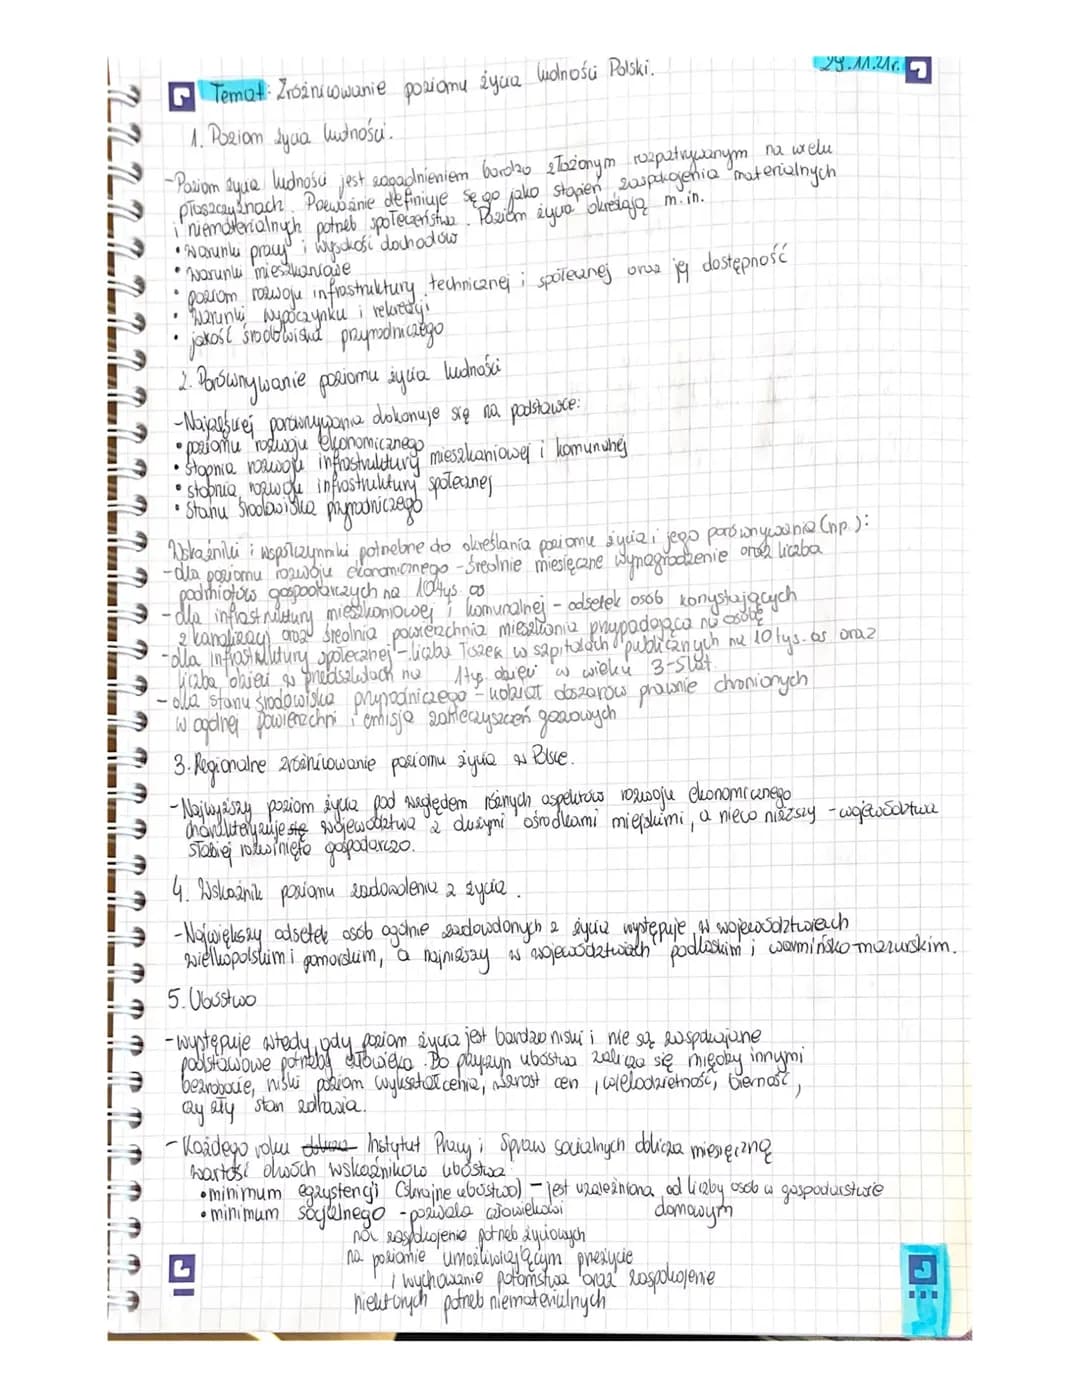 29.11.21r.
Temat: Zróżnicowanie poziomu życia ludności Polski.
1. Poziom życia ludności.
-Poziom życia ludności jest zagadnieniem bardzo złożonym rozpatrywanym na wielu
płaszczyznach. Poważnie definiuje się go jako stopień zaspokojenia materialnych
i niematerialnych potrzeb społeczeństwa. Poziom życia określają m.in.
• warunki pracy i wysokość dochodów
• warunki mieszkaniowe
• poziom rozwoju infrastruktury technicznej i społecznej oraz jej dostępność
• warunki wypoczynku i rekreacji
• jakość środowiska przyrodniczego
2. Porównywanie poziomu życia ludności
-Najczęściej porównywania dokonuje się na podstawie:
• poziomu rozwoju ekonomicznego
• stopnia rozwoju infrastruktury mieszkaniowej i komunalnej
• stopnia rozwoju infrastruktury społecznej
• stanu środowiska przyrodniczego
Wskaźniki i współczynniki potrzebne do określania poziomu życia i jego porównywania (np.):
-dla poziomu rozwoju ekonomicznego -średnie miesięczne wynagrodzenie oraz liczba
podmiotów gospodarczych na 10 tys. os
-dla infrastruktury mieszkaniowej i komunalnej - odsetek osób korzystających
z kanalizacji oraz średnia powierzchnia mieszkania przypadająca na osobę
-dla infrastruktury społecznej - liczba łóżek w szpitalach publicznych na 10 tys. os oraz
liczba dzieci w przedszkolach na 1 tys. dzieci w wieku 3-5 lat.
- dla stanu środowiska przyrodniczego - udział obszarów prawnie chronionych
w ogólnej powierzchni i emisja zanieczyszczeń gazowych
3. Regionalne zróżnicowanie poziomu życia w Polsce.
-Najwyższy poziom życia pod względem różnych aspektów rozwoju ekonomicznego
charakteryzuje się województwa z dużymi ośrodkami miejskimi, a nieco niższy - województwa
słabiej rozwinięte gospodarczo.
4. Wskaźnik poziomu zadowolenia z życia.
-Największy odsetek osób ogólnie zadowolonych z życia występuje w województwach
wielkopolskim i pomorskim, a najniższy w województwach podlaskim i warmińsko-mazurskim.
5. Ubóstwo
-występuje wtedy, gdy poziom życia jest bardzo niski i nie są zaspokajane
podstawowe potrzeby człowieka. Do przyczyn ubóstwa zalicza się między innymi
bezrobocie, niski poziom wykształcenia, wzrost cen, wielodzietność, bierność,
czy zły stan zdrowia.
- Każdego roku Instytut Pracy i Spraw Socjalnych oblicza miesięczną
wartość dwóch wskaźników ubóstwa
• minimum egzystencji (skrajne ubóstwo) - jest uzależniona od liczby osób w gospodarstwie
domowym
• minimum socjalnego - pozwala człowiekowi
na zaspokojenie potrzeb życiowych
na poziomie umożliwiającym przeżycie
i wychowanie potomstwa oraz zaspokojenie
niektórych potrzeb niematerialnych